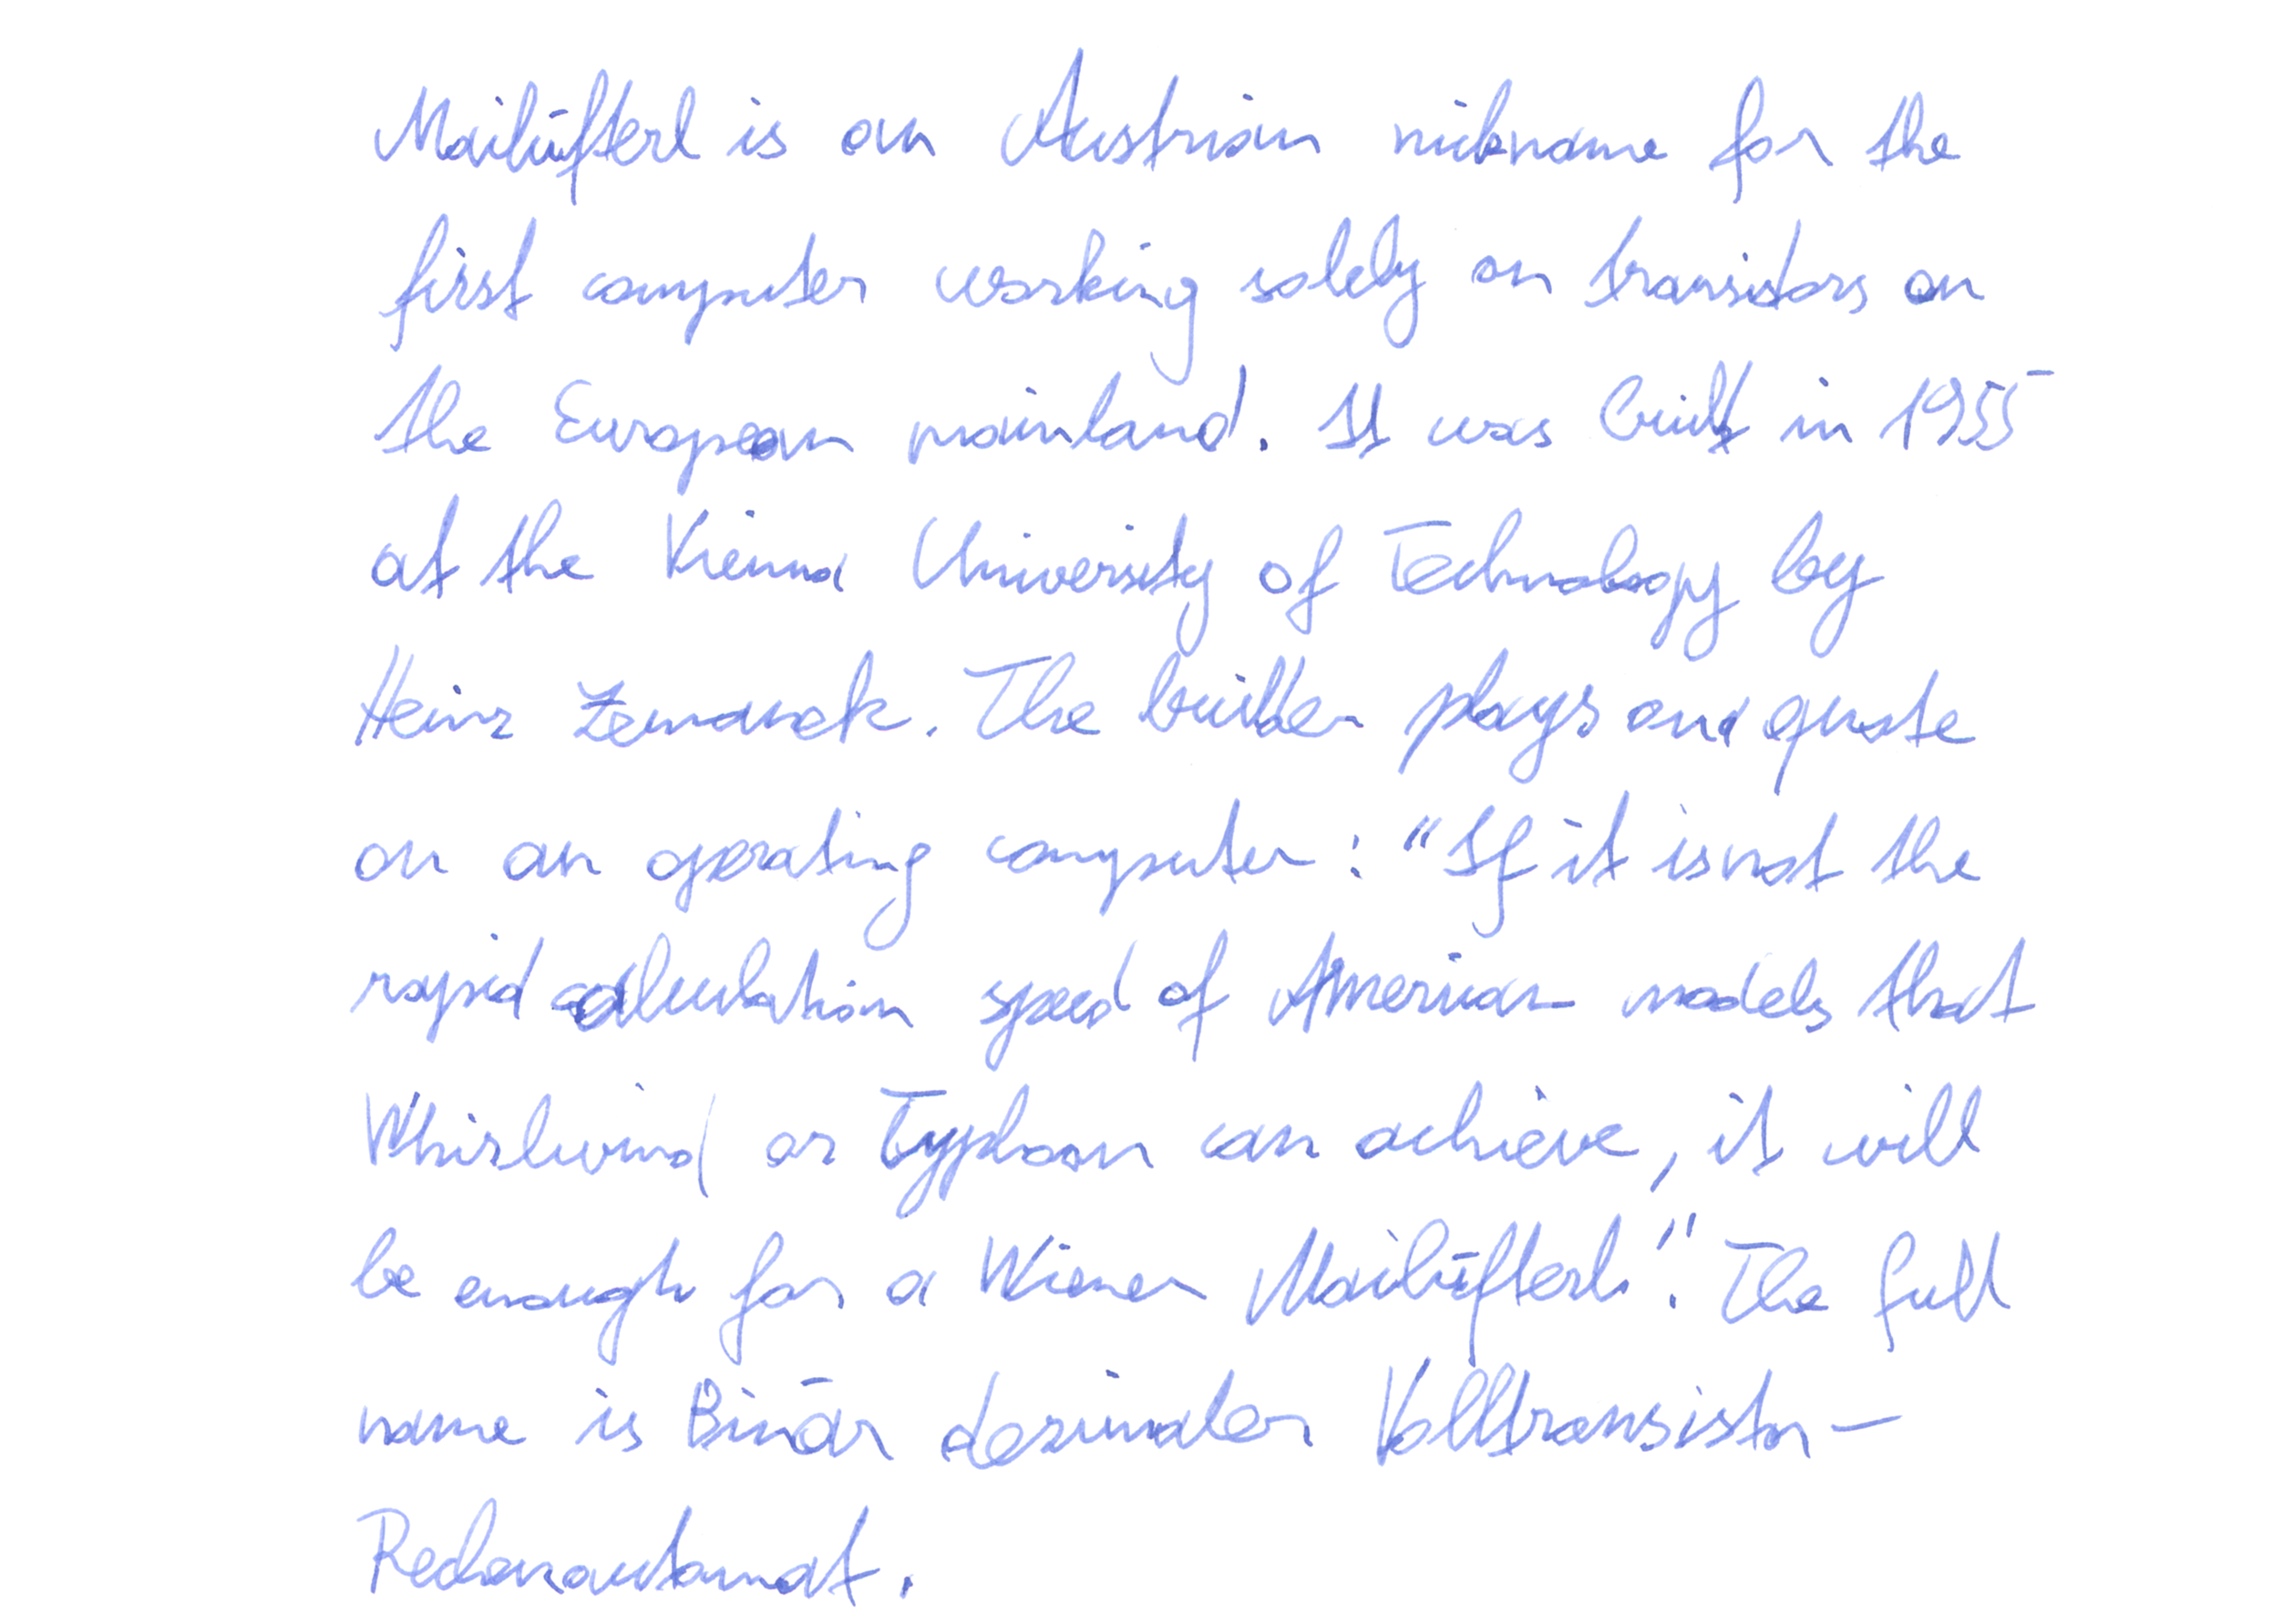 Mailüfterl is an Austrian nickname for the
first computer working solely on transistors on
the European mainland. It was built in 1955
at the Vienna University of Technology by
Heinz Zemanek. The builder plays on a quote
on an operating computer: "If it is not the
rapid calculation speed of American models that
Whirlwind or Typhoon can achieve, it will
be enough for a Wiener Mailüfterl." The full
name is Binär dezimaler Volltransistor-
Rechenautomat.